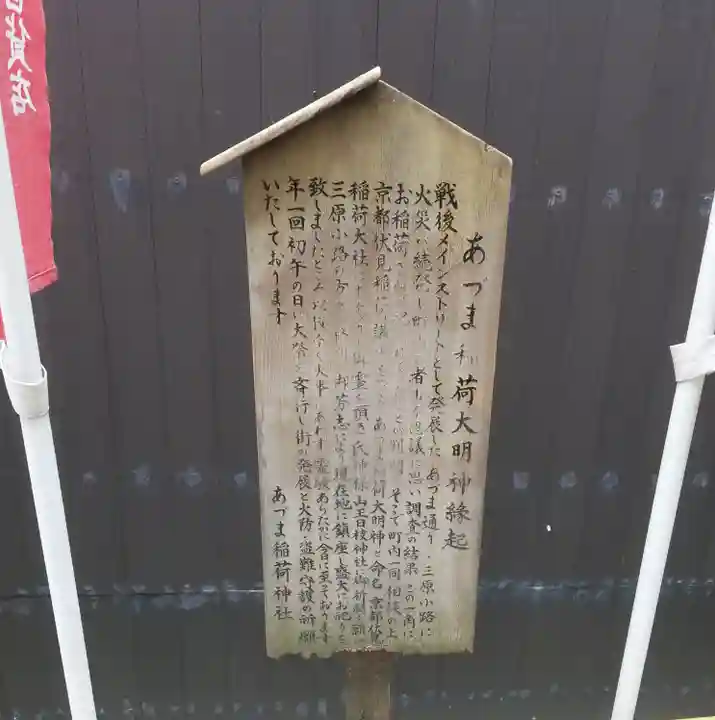 あづま稲荷大明神縁起
戦後メインストリートとして発展した あづま通り・三原小路に
火災が続発し町 者も不思議に思い調査の結果 この一角に
お稲荷 と判明 そこで町内一同相談の上
京都伏見稲 あづま稲荷大明神と命名 京都伏見
稲荷大社 御霊を頂き 氏神様 山王日枝神社に御祈願
三原小路の 御芳志により現在地に鎮座し盛大にお祀りを
致しましたところ 火事もあわず霊験あらたかに今日に至っております
年一回初午の日に大祭を斎行し街の発展と火防・盗難守護の祈願
いたしております
あづま稲荷神社
百貨店